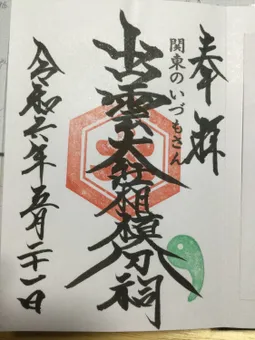 奉拝
関東のいづもさん
出雲大社相模分祠
令和六年五月二十一日